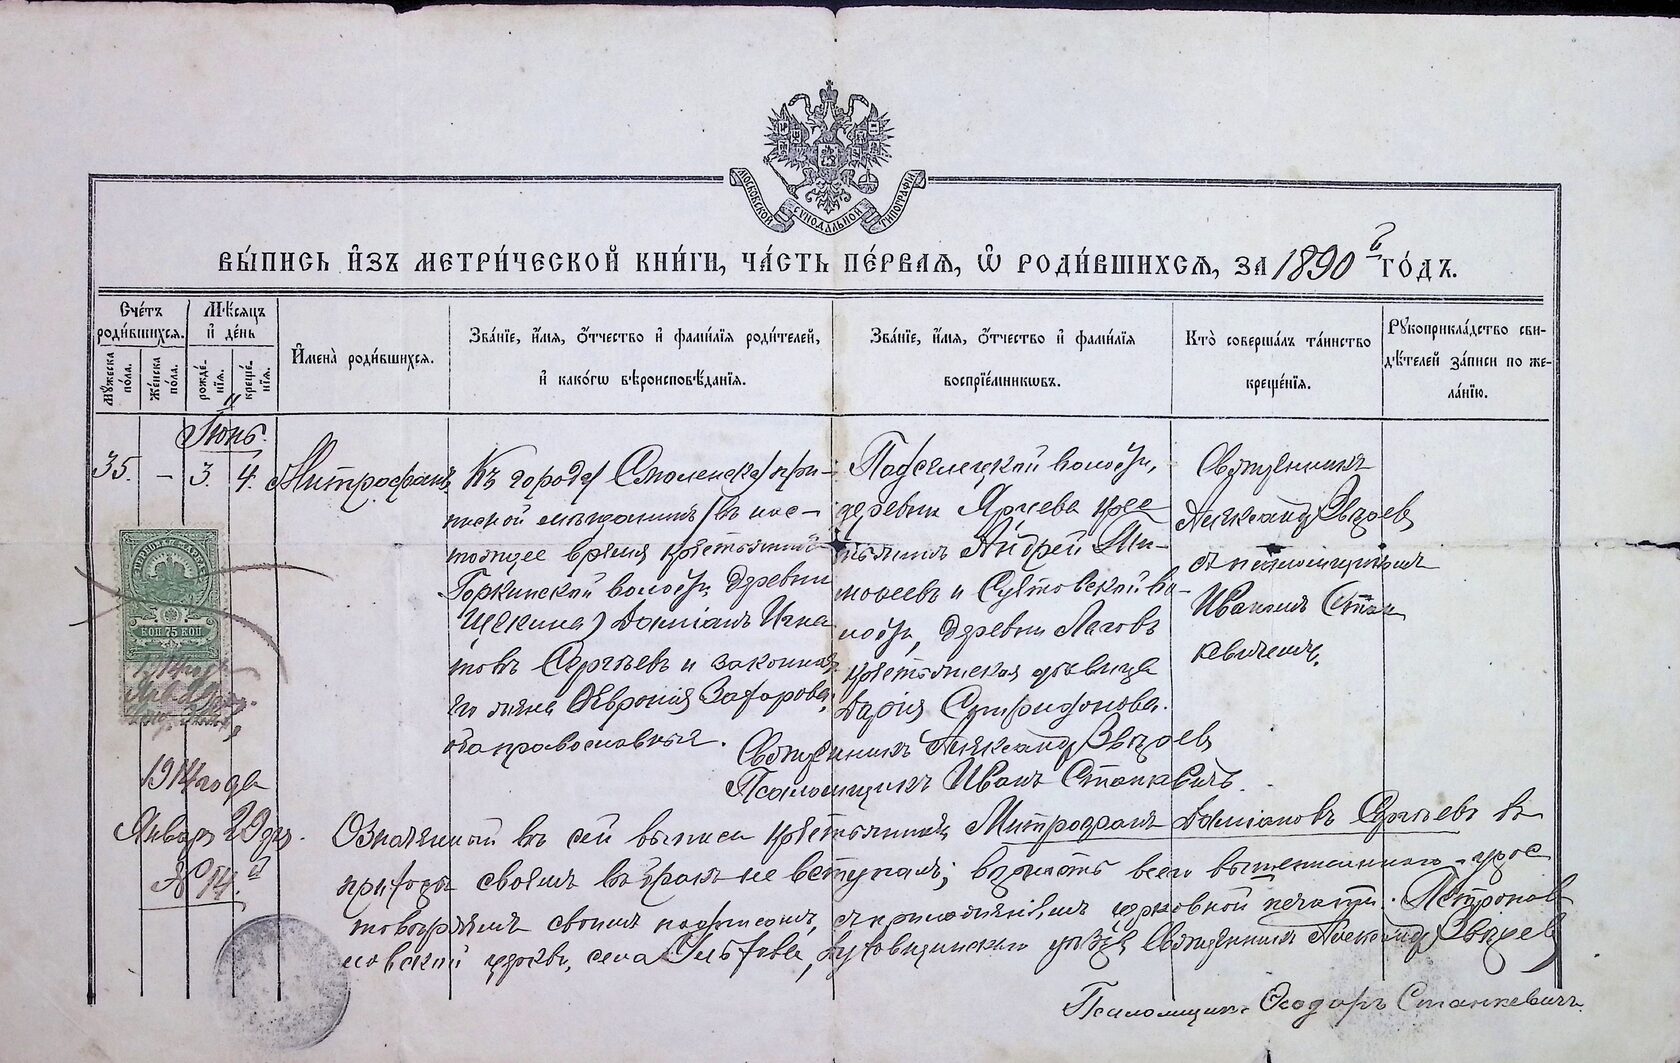 МОСКОВСКОЙ СѴНОДАЛЬНОЙ ТИПОГРАФІИ
ВЫ́ПИСЬ И҆ЗЪ МЕТРИ́ЧЕСКОЙ КНИ́ГИ, ЧА́СТЬ ПЕ́РВАѦ, Ѽ РОДИ́ВШИХСѦ, ЗА 1890й ГО́ДЪ.
Сче́тъ роди́вшихсѧ.
Мꙋ́жеска по́ла.
Же́нска по́ла.
Мѣ́сѧцъ и҆ де́нь
рожде́нїѧ.
креще́нїѧ.
И҆мена̀ роди́вшихсѧ.
Зва́нїе, и҆́мѧ, ѻ҆́тчество и҆ фами́лїѧ роди́телей,
и҆ како́гѡ вѣроисповѣ́данїѧ.
Зва́нїе, и҆́мѧ, ѻ҆́тчество и҆ фами́лїѧ
воспрїе́мникѡвъ.
Кто̀ соверша́лъ та́инство
креще́нїѧ.
Рꙋкоприкла́дство сви-
дѣ́телей за́писи по же-
ла́нїю.
Іюнь.
35. — 3. 4. Митрофанъ.
Къ городу Смоленску при-
писной мѣщанинъ (въ нас-
тоящее время крестьянинъ
Горкинской волости, деревни
Щекина) Даміанъ Игна
товъ Сергѣевъ и законная
его жена Ѳевронія Захарова,
оба православные.
волости,
деревни Ярцева крес
тьянинъ Андрей Ти-
моѳеевъ и Сутовской во-
лости, деревни
крестьянская дѣвица
Дарія Спиридонова.
Священникъ
Александръ Звѣревъ
съ псаломщикомъ
Иваномъ Стан
кевичемъ.
КОП 75 КОП
Священникъ Александръ Звѣревъ
Псаломщикъ Иванъ Станкевичъ.
1914 года
Января 29 дня.
№ 14.й
Означенный въ сей выписи крестьянинъ Митрофанъ Даміановъ Сергѣевъ въ
приходѣ своемъ въ бракъ не вступалъ; вѣрность всего вышеписаннаго удос
товѣряемъ своимъ подписомъ, съ приложеніемъ церковной печати. Петропав
ловской церкви, села Духовщинскаго уѣзда Священникъ Александръ Звѣревъ
Псаломщикъ Ѳеодоръ Станкевичъ.